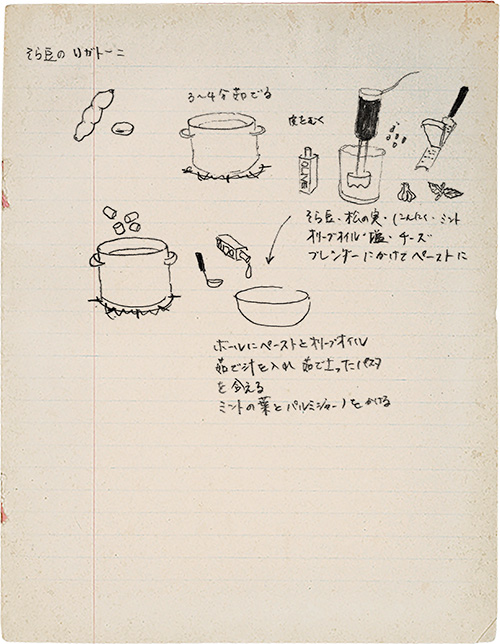 そら豆のリガトーニ
3〜4分茹でる
皮をむく
OLIVE
そら豆・松の実・にんにく・ミント
オリーブオイル・塩・チーズ
ブレンダーにかけてペーストに
ボールにペーストとオリーブオイル
茹で汁を入れ 茹で上ったパスタ
を合える
ミントの葉とパルミジャーノをかける